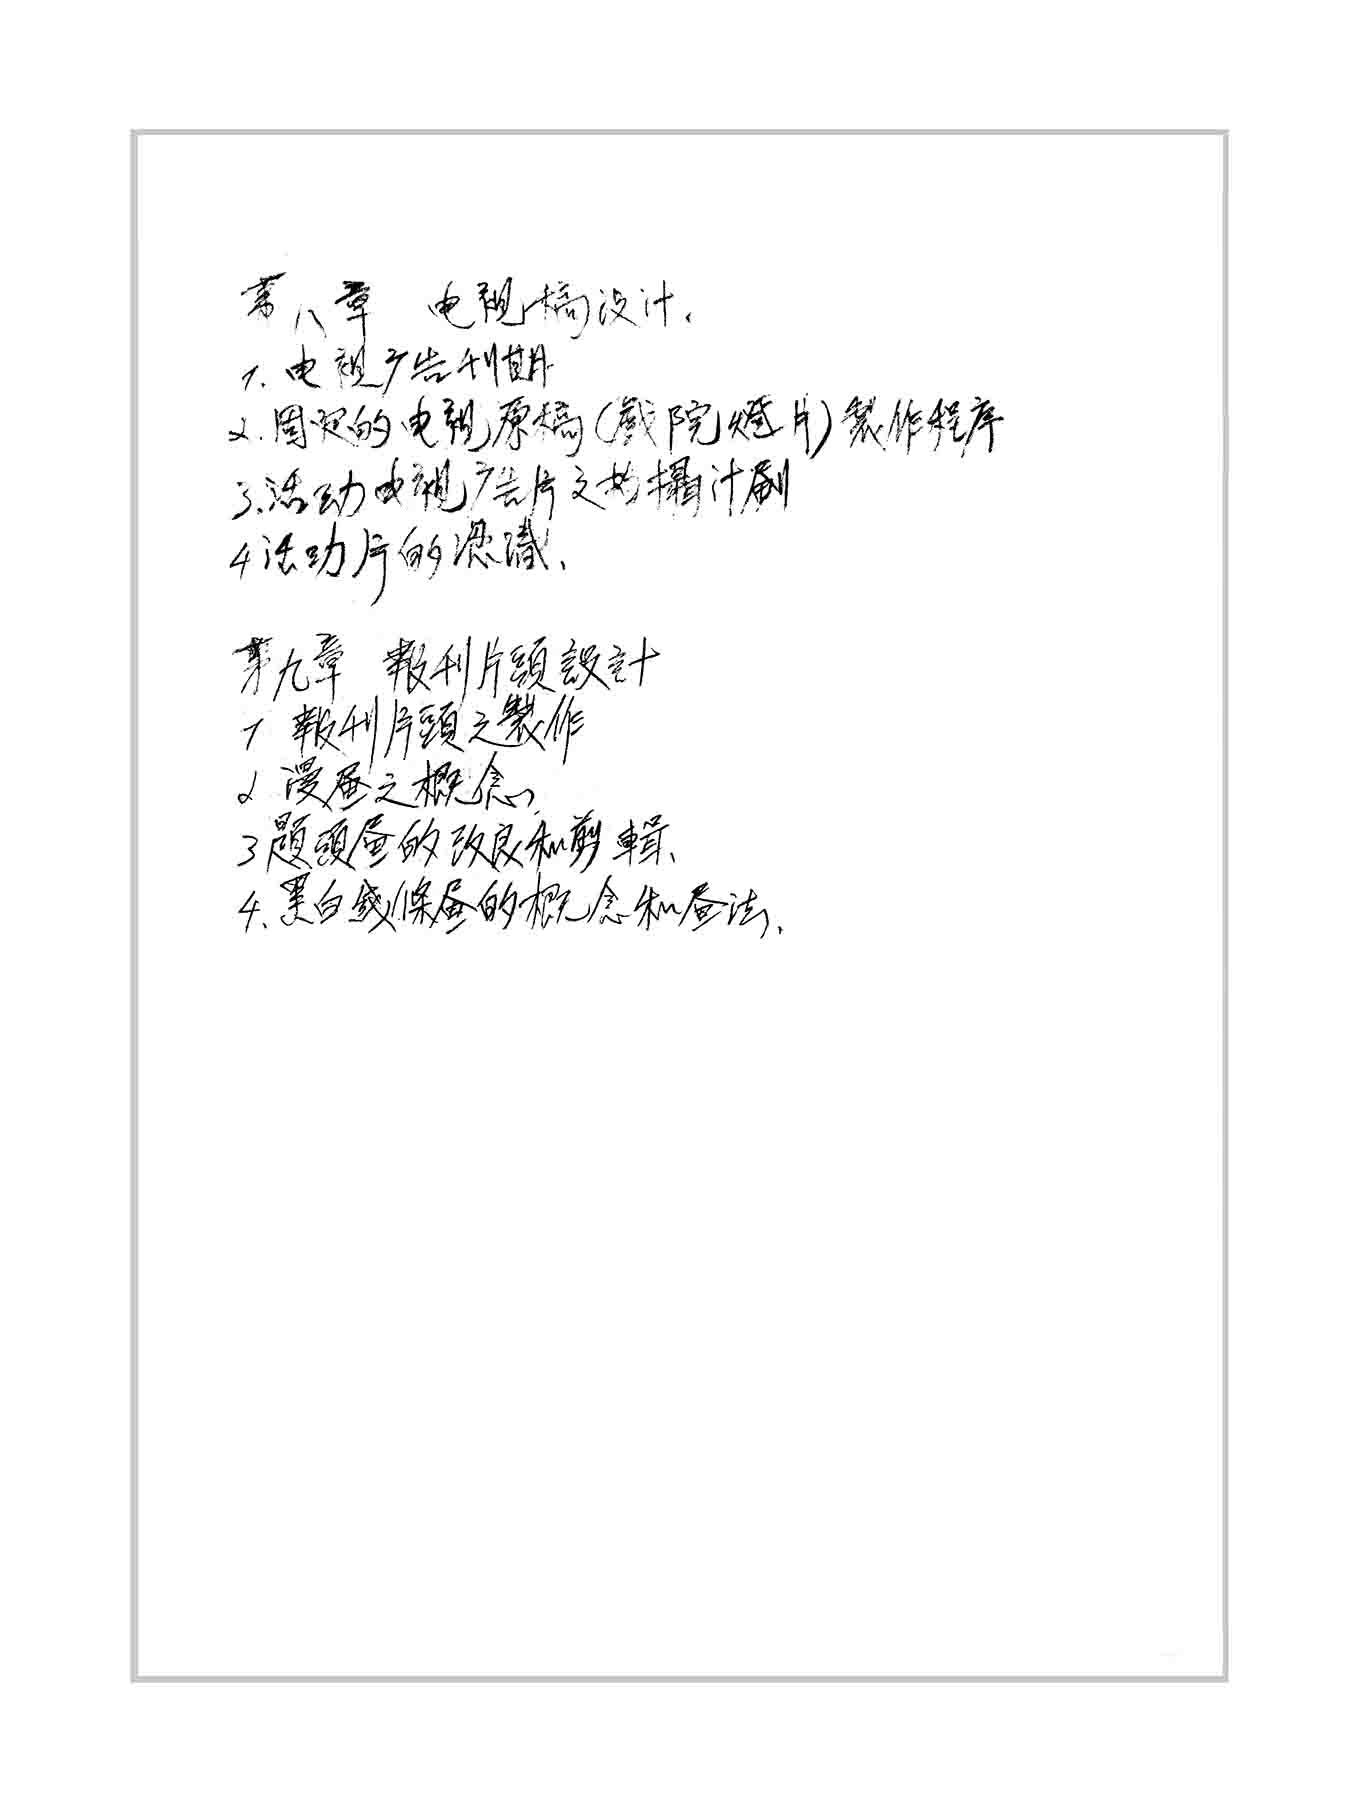 第八章 电視稿设计.
1. 电視广告刊期
2. 固定的电視原稿(戲院燈片)製作程序
3. 活动电視广告片文的攝计劃
4 活动片的
第九章 報刊片頭設計
1 報刊片頭之製作
2 漫畫之概念.
3 題頭畫的改良和剪輯、
4. 黑白綫條畫的概念和畫法、